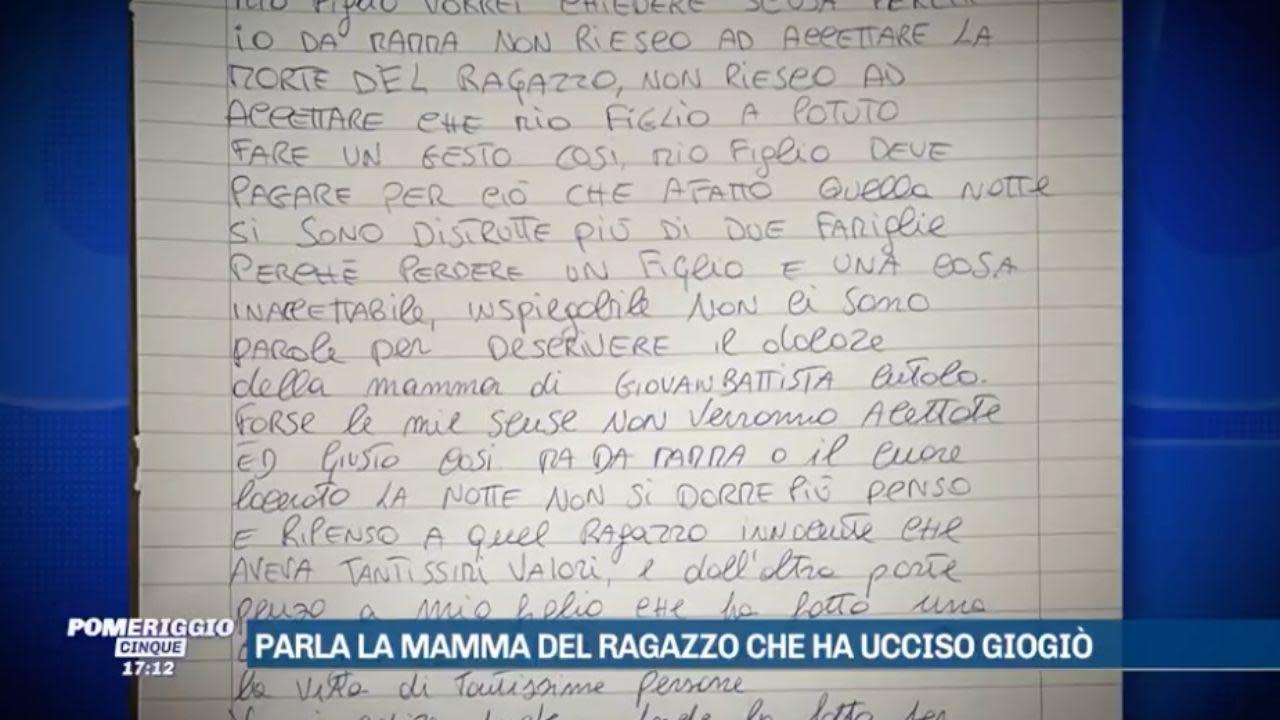 mio figlio VORREI CHIEDERE SCUSA PERCHÉ
iO DA MAMMA NON RiESCO AD ACCETTARE LA
MORTE DEL RAGAZZO, NON RiESCO AD
ACCETTARE CHE MiO FiGLiO A POTUTO
FARE UN GESTO COSI, MiO FiGLiO DEVE
PAGARE PER CiÓ CHE A FATTO QUELLA NOTTE
Si SONO DISTRUTTE PiÙ Di DUE FAMiGLiE
PERCHÈ PERDERE UN FiGLiO E UNA COSA
INACCETTABiLe, inspiegabile NON Ci SONO
PAROLe per DESCRIVERE il doloze
della mamma di GIOVANBATTISTA Cutolo.
FORSE le mie scuse NON Verranno Acettate
ED GiUSTO COSi MA DA MAMMA O il Cuore
lacerato LA NOTTE NON Si DORME PiÙ PENSO
E RiPENSO A QUEL RAGAZZO INNOCENTE CHE
AVEVA TANTISSIMI VALORI, e dall'altra parte
penzo a mio figlio CHE ha fatto una
POMERIGGIO
CINQUE
17:12
PARLA LA MAMMA DEL RAGAZZO CHE HA UCCISO GIOGIÒ
la Vitta di Tantissime Persone